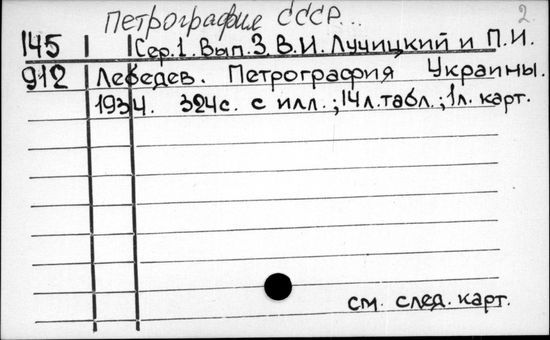 Петрография СССР... 2.
145 Сер.1. Вып.3. В.И. Лучицкий и П.И.
912 Лебедев. Петрография Украины.
1934. 324с. с илл.; 14л.табл.; 1л. карт.
см. след. карт.